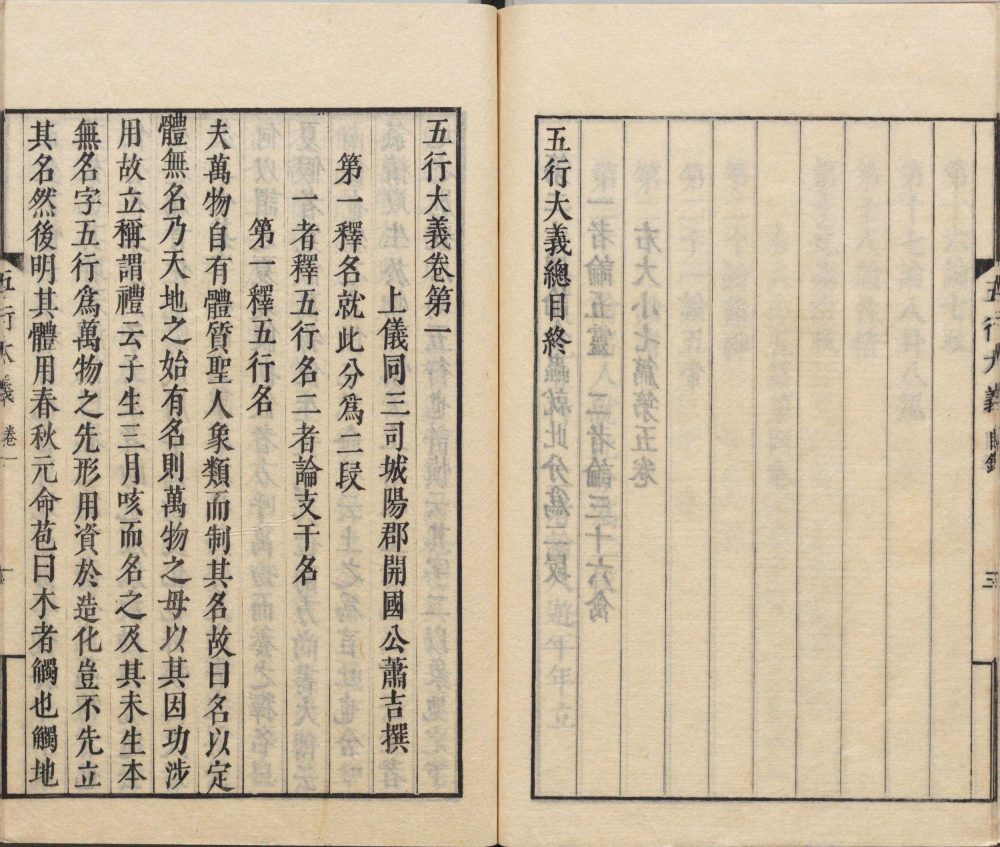 五行大義總目終
五行大義 目錄 三
五行大義卷第一
上儀同三司城陽郡開國公蕭吉撰
第一釋名就此分爲二叚
一者釋五行名二者論支干名
第一釋五行名
夫萬物自有體質聖人象類而制其名故曰名以定
體無名乃天地之始有名則萬物之母以其因功涉
用故立稱謂禮云子生三月咳而名之及其未生本
無名字五行爲萬物之先形用資於造化豈不先立
其名然後明其體用春秋元命苞曰木者觸也觸地
五行大義 卷一 一